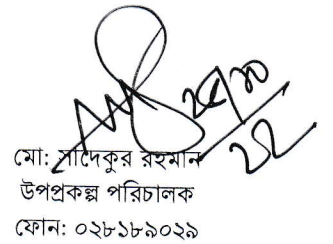 ২৫/১০/২২
মো: সাদেকুর রহমান
উপপ্রকল্প পরিচালক
ফোন: ০২৮১৮৯০২৯